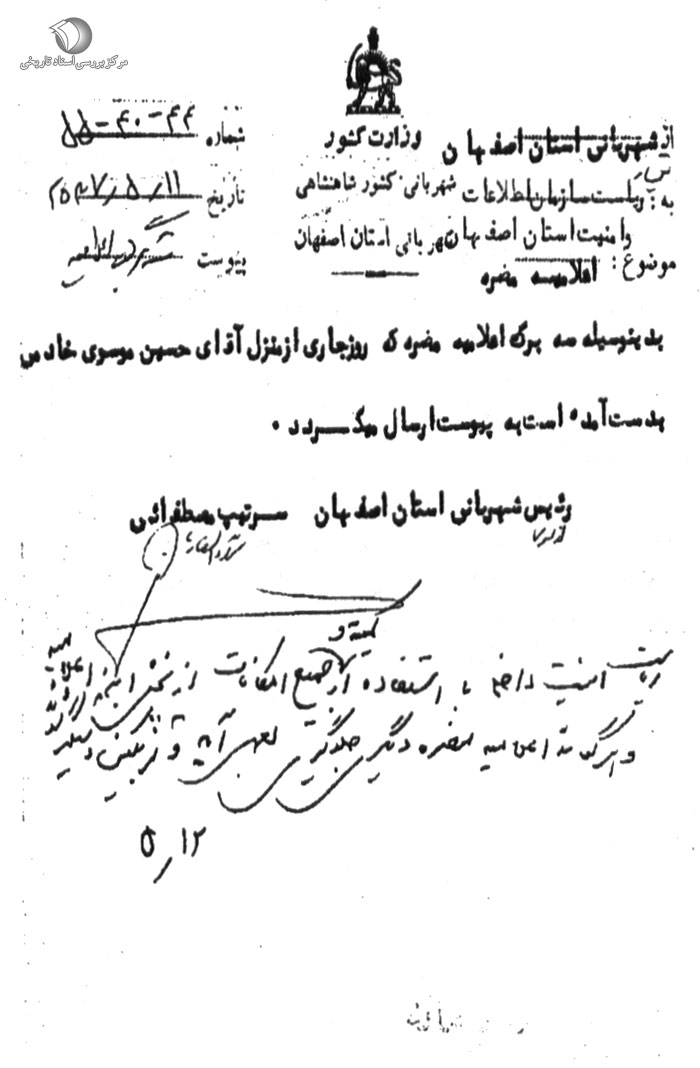 مرکز بررسی اسناد تاریخی
وزارت کشور
شهربانی کشور شاهنشاهی
شهربانی استان اصفهان
از شهربانی استان اصفهان
به: ریاست سازمان اطلاعات
و امنیت استان اصفهان
موضوع: اعلامیه مضره
شماره ۴۴-۴۰-۵۵
تاریخ ۲۵۳۷/۵/۱۱
پیوست
بدینوسیله سه برگ اعلامیه مضره که روزجاری ازمنزل آقای حسین موسوی خادمی
بدست آمده است به پیوست ارسال میگردد.
رئیس شهربانی استان اصفهان سرتیپ مصطفائی
ریاست امنیت داخلی با استفاده از جمیع امکانات از پخش این
و هرگونه اعلامیه مضره دیگری جلوگیری بعمل آید و
۵/۱۲